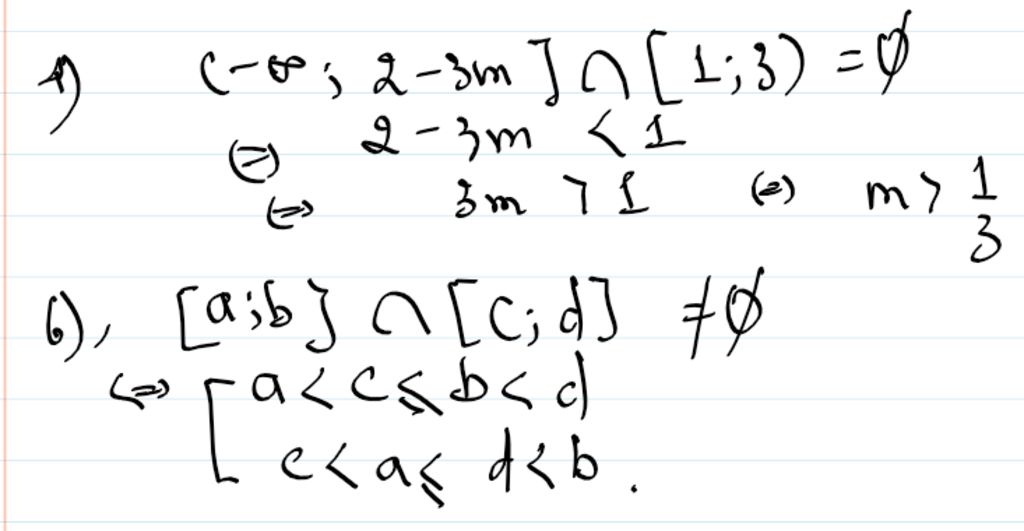 1) (-∞; 2-3m] ∩ [1;3) = ∅
⇔ 2-3m < 1
⇔ 3m > 1 ⇔ m > 1/3
6), [a;b] ∩ [c;d] ≠ ∅
⇔ [ a < c ≤ b < d
c < a ≤ d < b.